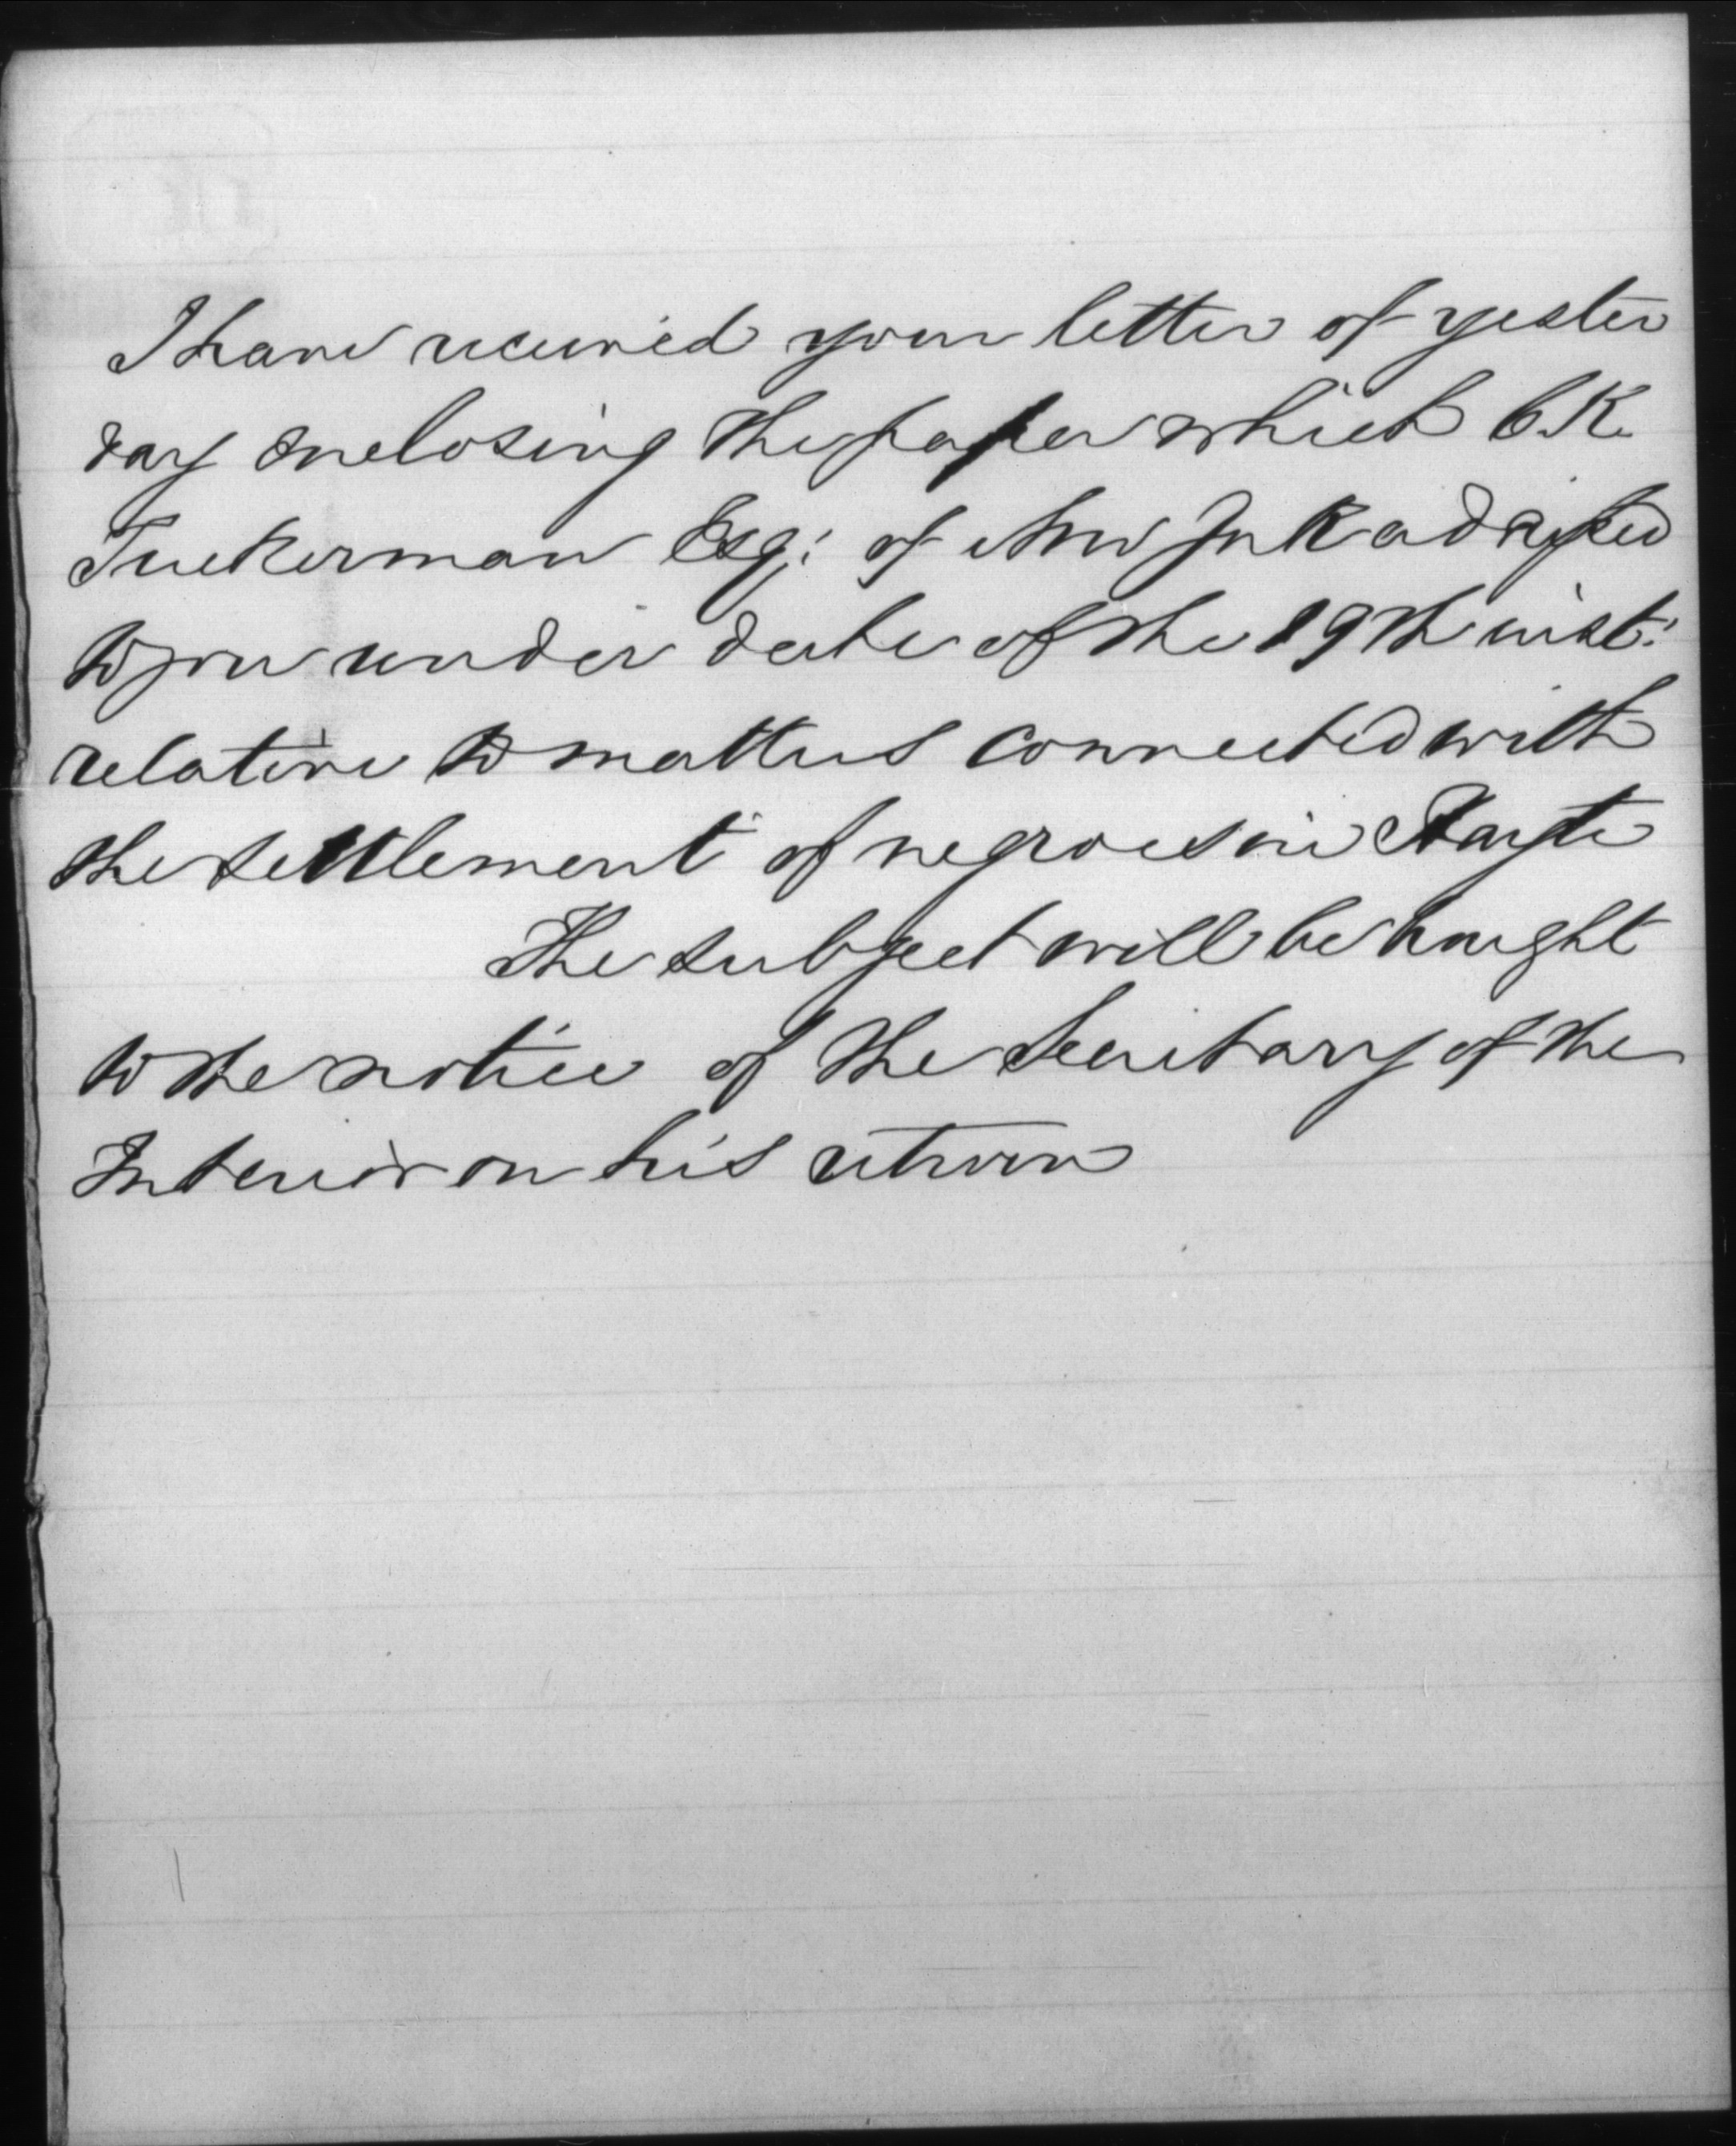 I have received your letter of yester
day enclosing the paper which C.K.
Tuckerman Esq: of New York addressed
to you under date of the 19th inst:
relative to matters connected with
the settlement of negroes in Hayti
The subject will be brought
to the notice of the Secretary of the
Interior on his return